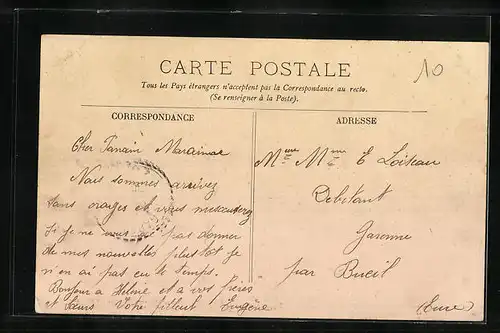 10
CARTE POSTALE
Tous les Pays étrangers n'acceptent pas la Correspondance au recto.
(Se renseigner à la Poste).
CORRESPONDANCE
ADRESSE
Cher Parrain Marainne
Nous sommes arrivez
sans orages et vous mescuserez
Si je ne vous ai pas donner
de mes nouvelles plus tot je
n en ai pas eu le temps.
Bonjour a Helene et a vos frères
et Sœurs Votre filleul Eugène
Mme E Loiseau
Debitant
Garenne
par Bueil
(Eure)